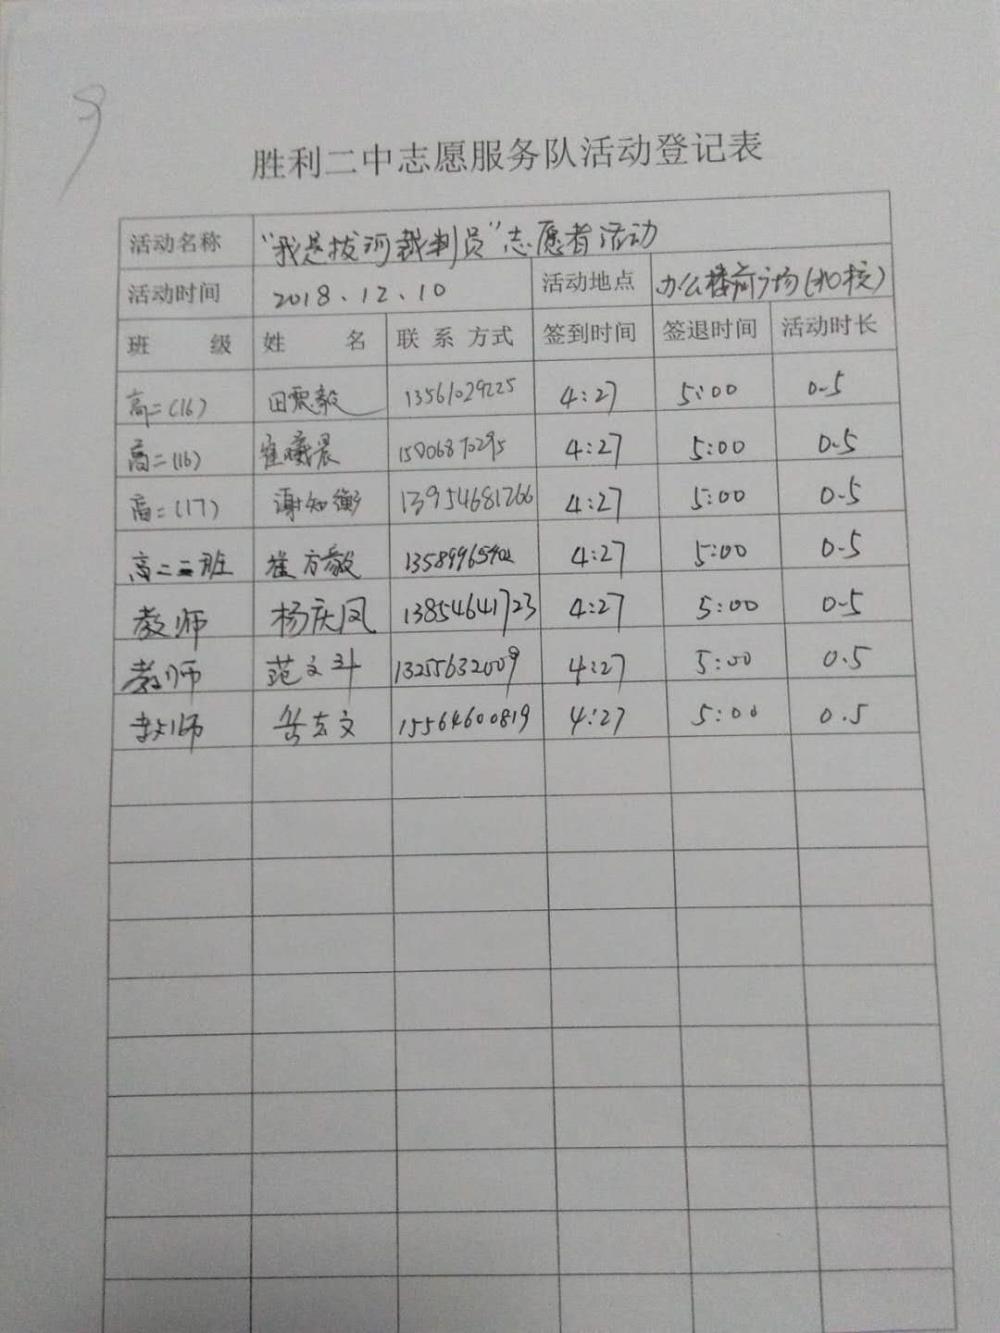 胜利二中志愿服务队活动登记表
活动名称 "我是拔河裁判员"志愿者活动
活动时间 2018.12.10 活动地点 办公楼前广场(本校)
班 级 姓 名 联 系 方式 签到时间 签退时间 活动时长
高二(16) 田 毅 13561029225 4:27 5:00 0.5
高二(16) 崔曦晨 15006870295 4:27 5:00 0.5
高二(17) 谢知衡 13954681266 4:27 5:00 0.5
高二二班 崔方毅 4:27 5:00 0.5
教师 杨庆凤 13854641723 4:27 5:00 0.5
教师 范文斗 13255632009 4:27 5:00 0.5
教师 岳志文 15564600819 4:27 5:00 0.5